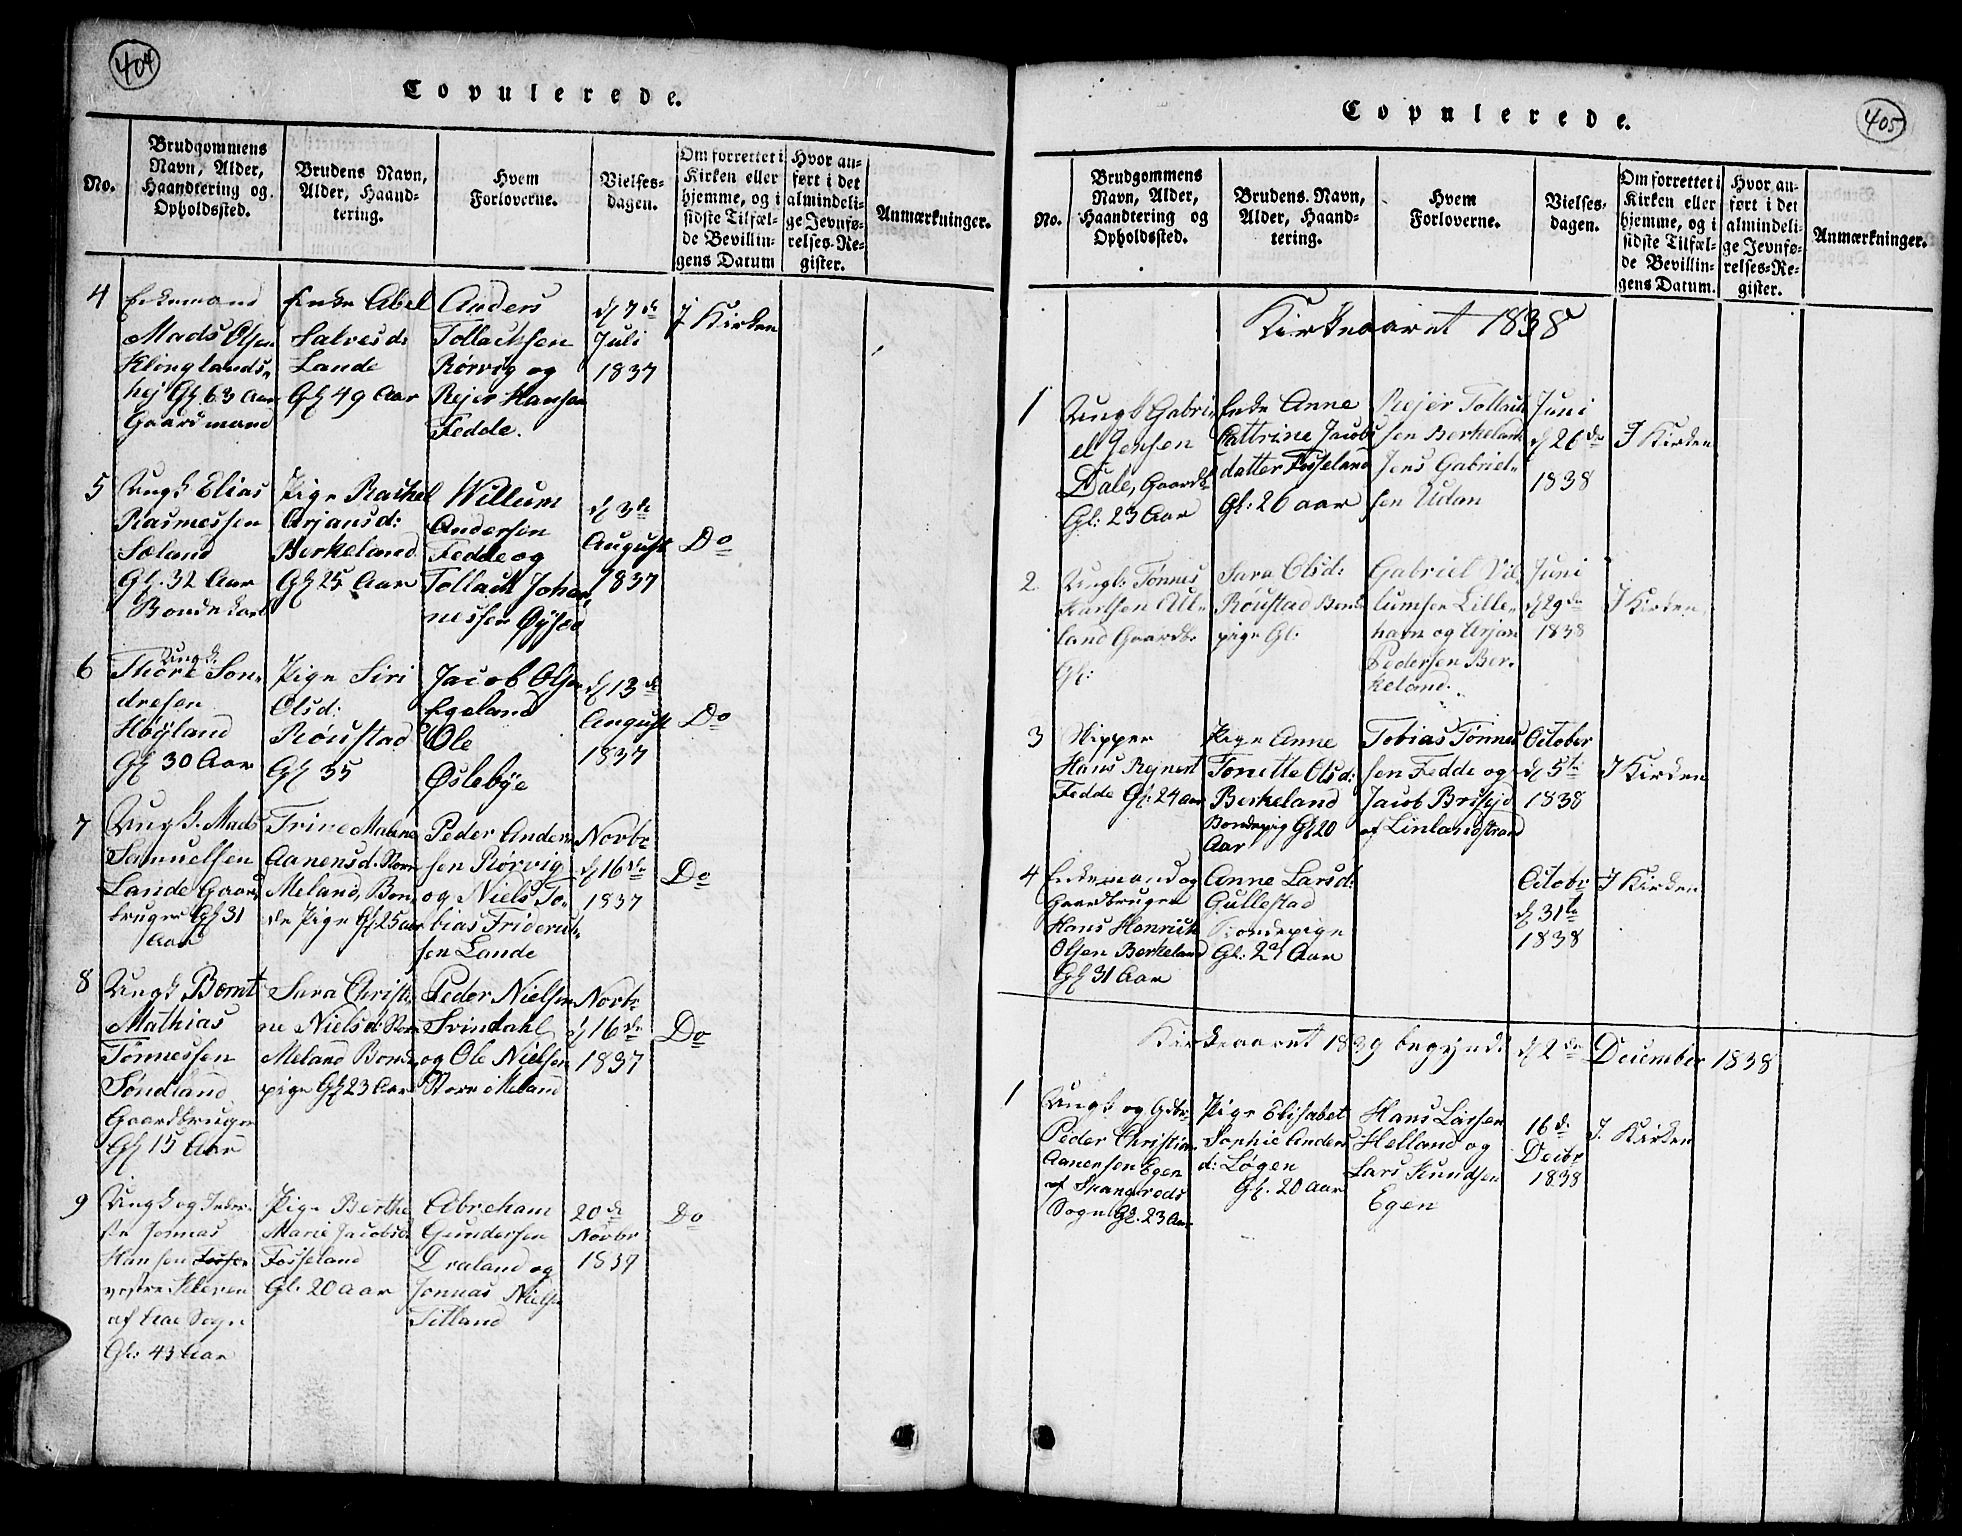 404
Copulerede.
No.
Brudgommens
Navn, Alder,
Haandtering og
Opholdssted.
Brudens Navn,
Alder, Haand-
tering.
Hvem
Forloverne.
Vielses-
dagen.
Om forrettet i
Kirken eller
hjemme, og i
sidste Tilfæl-
de Bevillin-
gens Datum
Hvor an-
ført i det
almindeli-
ge Jevnfø-
relses-Re-
gister.
Anmærkninger.
4
Enkemand
Mads Olsen
Klinglands-
hej Gl. 63 Aar
Gaardmand
Enke Abel
Salvesd:
Lande
Gl 49 Aar
Anders
Tollacksen
Rørvig og
Rejer Hansen
Fedde.
d 7de
Juli
1837
I Kirken
5
Ungk Elias
Rasmessen
Sæland
Gl. 32 Aar
Bondekarl
Pige Rachel
Arjansd:
Berkeland
Gl 25 Aar
Willum
Andersen
Fedde og
Tollack Johan-
nessen Øysæd
d 3de
August
1837
Do
6
Ungk.
Thore Son-
dresen
Høyland
Gl 30 Aar
Pige Siri
Olsd:
Røustad
Gl 35
Jacob Olsen
Egeland
Ole
Øslebye
d 13de
August
1837
Do
7
Ungk. Mads
Samuelsen
Lande Gaard
bruger Gl 31
Aar
Trine Malene
Aanensd: Store
Meland, Bon-
de Pige Gl 25 aar
Peder Ander-
sen Rørvig
og Niels To-
bias Friderik-
sen Lande
Novbr
d 16de
1837
Do
8
Ungk Bernt
Mathias
Tønnessen
Søndland
Gaardbruger
Gl 15 Aar
Sara Christi-
ne Nielsd: Store
Meland Bonde
pige Gl 23 Aar
Peder Nielsen
Svindahl
og Ole Nielsen
Store Meland
Novbr
d 16de
1837
Do
9
Ungk og Inder-
ste Jonnas
Hansen
vestre Skeven
af Sogn
Gl: 43 Aar
Pige Berthe
Marie Jacobsd
Fosseland
Gl: 20 aar
Abreham
Gundersen
Draland og
Jonnas Nielsen
Titland
20de
Novbr
1837
Do
405
Copulerede.
No.
Brudgommens
Navn, Alder,
Haandtering og
Opholdssted.
Brudens. Navn,
Alder, Haand-
tering.
Hvem
Forloverne.
Vielses-
dagen.
Om forrettet i
Kirken eller
hjemme, og i
sidste Tilfæl-
de Bevillin-
gens Datum.
Hvor an-
ført i det
almindeli-
ge Jevnfø-
relses-Re-
gister.
Anmærkninger.
Kirkeaaret 1838
1
Ungk Gabri-
el Jensen
Dale, Gaardb
Gl: 23 Aar
Enke Anne
Cattrine Jacobs
datter Fosseland
Gl: 26 aar
Rejer Tollack
sen Berkeland
Jens Gabriel-
sen Udan
Juni
d 26de
1838
I Kirken
2
Ungk: Tønnes
Karlsen
land Gaardbr
Gl:
Sara Olsd:
Røustad Bonde
pige Gl:
Gabriel Vil-
lumsen Lille-
ham og Arjan
Pedersen Ber-
keland.
Juni
d 29de
1838
I Kirken
3
Skipper
Hans Rejnert
Fedde Gl. 24 aar
Pige Anne
Tonette Olsd:
Berkeland
Bondepig Gl 20
Aar
Tobias Tønnes
sen Fedde og
Jacob Brisejd
af Linlandstrand
October
d 5te
1838
I Kirken
4
Enkemand og
Gaardbruger
Hans Henrich
Olsen Berkeland
Gl 31 Aar
Anne Larsd:
Gullestad
Bondepige
Gl: 29 Aar
Octobr
d 31te
1838
I Kirken
Kirkeaaret 1839 begyndt d 2de December 1838
1
Ungk og Gdbr.
Peder Christian
Aanensen Egen
af Spangreds
Sogn Gl. 23 Aar
Pige Elisabet
Sophie Anders
d: Løgen
Gl. 20 aar
Hans Larsen
Helland og
Lars Knudsen
Egen
16de
Decbr
1838
I. Kirken